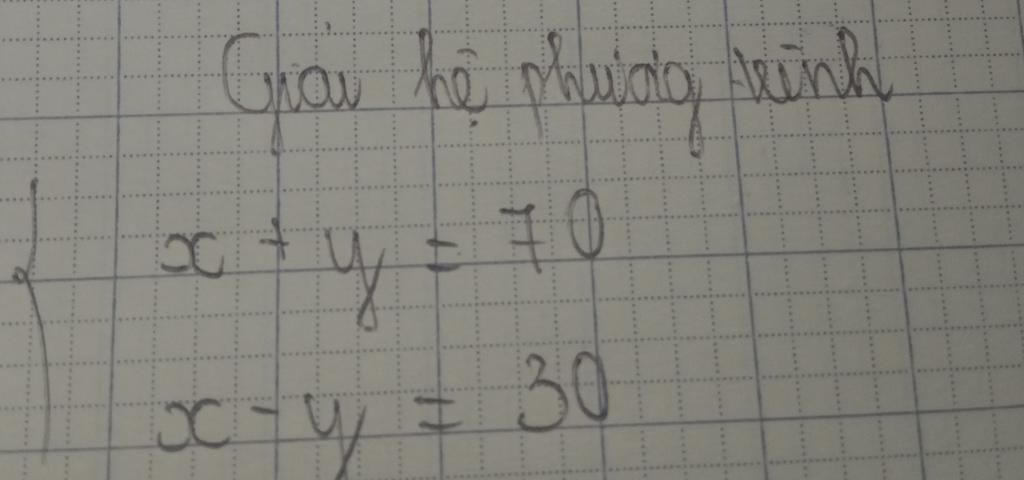 Giải hệ phương trình
x + y = 70
x - y = 30